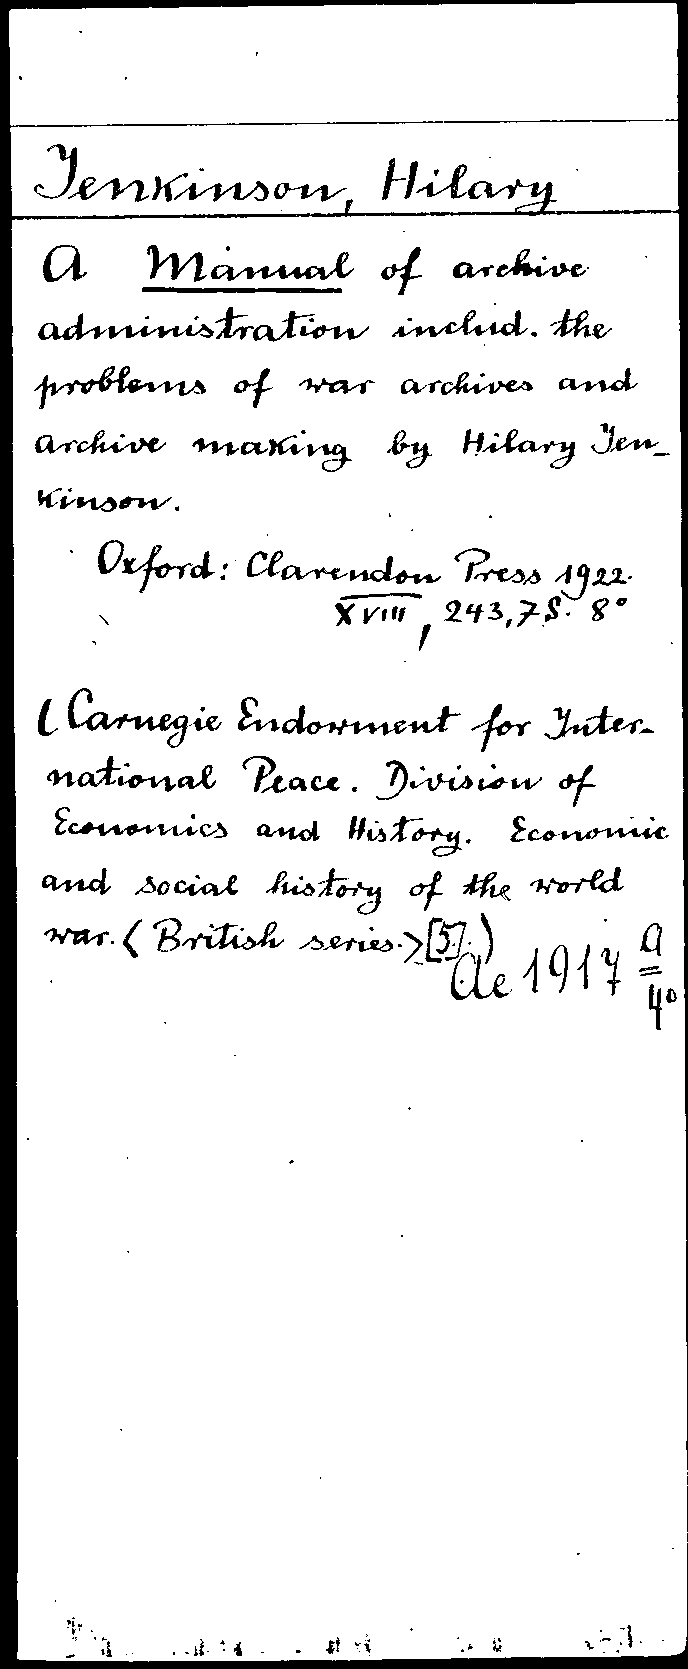 Jenkinson, Hilary
A Manual of archive
administration includ. the
problems of war archives and
archive making by Hilary Jen-
kinson.
Oxford: Clarendon Press 1922.
XVIII, 243, 7 S. 8°
(Carnegie Endowment for Inter-
national Peace. Division of
Economics and History. Economic
and social history of the world
war. <British series.> [5].)
Ae 1917 a
4°